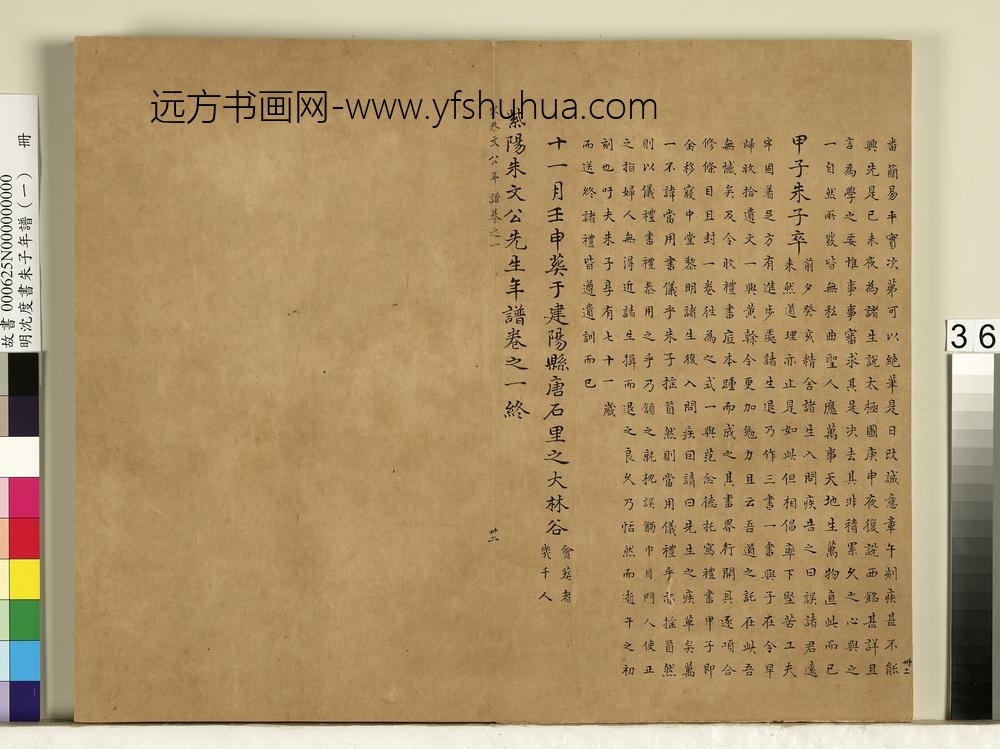 远方书画网-www.yfshuhua.com
番簡易平實次第可以絶筆是日改誠意章午刻疾甚不能
興先是己未夜為諸生說太極圖庚申夜復說西銘甚詳且
言為學之要惟事事審求其是決去其非積累久之心與之
一自然所發皆無私曲聖人應萬事天地生萬物直此而已
甲子朱子卒
前夕癸亥精舍諸生入問疾告之曰誤諸君遠
来然道理亦止是如此但相倡率下堅苦工夫
牢固着足方有進步處諸生退乃作三書一書與子在令早
歸收拾遺文一與黄榦令更加勉力且云吾道之託在此吾
無憾矣及令收禮書底本踵而成之其書界行開具逐項合
修條目且封一卷往為之式一與范念德托寫禮書甲子即
命移寢中堂黎明諸生復入問疾因請曰先生之疾革矣萬
一不諱當用書儀乎朱子搖首然則當用儀禮乎亦搖首然
則以儀禮書禮叅用之乎乃頷之就枕誤觸巾目門人使正
之指婦人無得近諸生揖而退之良久乃恬然而逝午之初
刻也吁夫朱子享有七十一歲
而送終諸禮皆遵遺訓而已
十一月壬申葬于建陽縣唐石里之大林谷
會葬者
幾千人
紫陽朱文公先生年譜卷之一終
朱文公年譜卷之一
卅二
卅二
故書 000625N000000000
明沈度書朱子年譜(一) 冊
36